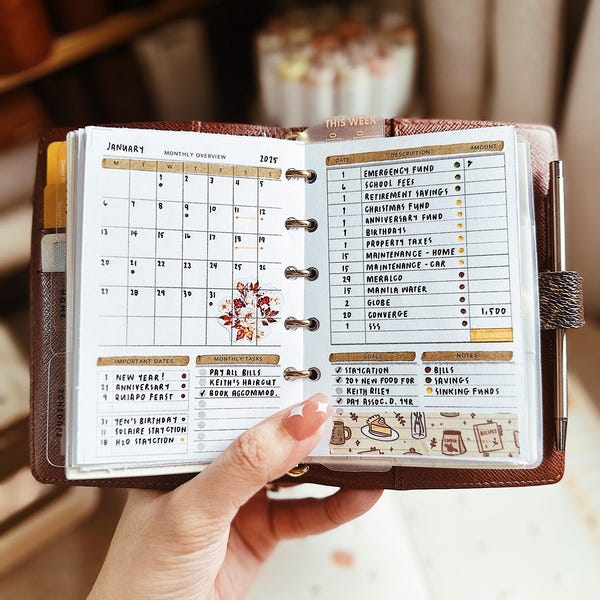 THIS WEEK
JANUARY MONTHLY OVERVIEW 2025
M T W T F S S
1 2 3 4 5
6 7 8 9 10 11 12
13 14 15 16 17 18 19
20 21 22 23 24 25 26
27 28 29 30 31
IMPORTANT DATES
1 NEW YEAR!
21 ANNIVERSARY
9 QUIAPO FEAST
31 YEN'S BIRTHDAY
11 SOLAIRE STAYCTION
18 H2O STAYCTION
MONTHLY TASKS
PAY ALL BILLS
KEITH'S HAIRCUT
BOOK ACCOMMOD.
DATE DESCRIPTION AMOUNT
1 EMERGENCY FUND ₱
6 SCHOOL FEES
1 RETIREMENT SAVINGS
1 CHRISTMAS FUND
1 ANNIVERSARY FUND
1 BIRTHDAYS
1 PROPERTY TAXES
15 MAINTENANCE - HOME
15 MAINTENANCE - CAR
29 MERALCO
15 MANILA WATER
2 GLOBE
20 CONVERGE 1,500
1 SSS
GOALS
STAYCATION
20+ NEW FOOD FOR
KEITH RILEY
PAY ASSOC. D. 1YR
NOTES
BILLS
SAVINGS
SINKING FUNDS
RECIPES